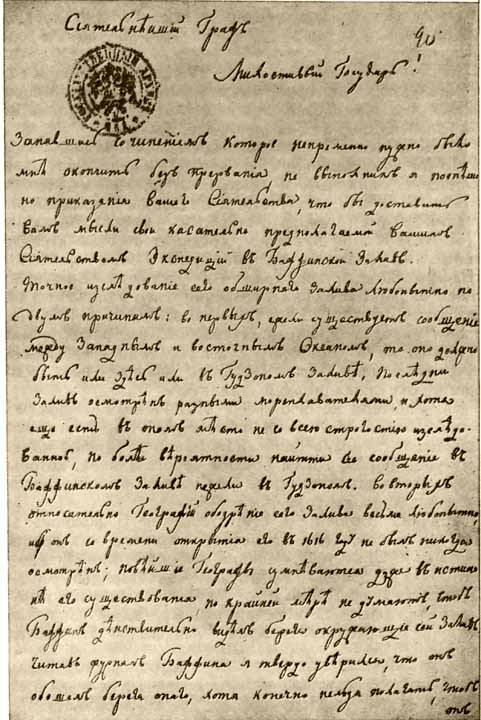 Сіятельнѣишій Графъ
Милостивый Государь!
Занявшись сочиненіемъ которое непременно нужно было
мнѣ окончить безъ прерванія не выполнилъ я поспѣшно
по приказанія Вашего Сіятельства, что бы доставить
Вамъ мысли свои касательно предполагаемой Вашимъ
Сіятельствомъ Экспедицій въ Баффинской Заливъ.
Точное изслѣдованіе сего обширнаго Залива любопытно по
двумъ причинамъ: во первыхъ, ежели существуетъ сообщеніе
между Западнымъ и восточнымъ Океаномъ, то оно должно
быть или здѣсь или въ Гудзономъ Заливѣ, Послѣдни
Заливъ осмотрѣнъ разными мореплавателями, и хотя
еще есть въ ономъ мѣсто не со всею строгостію изслѣдо-
ванное, но болѣе вѣроятности найтить сіе сообщеніе въ
Баффинскомъ Заливѣ нежели въ Гудзономъ. Во вторыхъ
относительно Географій обозрѣніе сего Залива весьма любопытно,
ибо онъ со времени открытія его въ 1616 году не былъ никогда
осмотрѣнъ; новѣйшіе Географы сумнѣваются даже въ истин-
нѣ его существованія по крайней мѣрѣ не думаютъ, чтобъ
Баффинъ дѣиствительно видѣлъ берега окружающіе сей Заливъ
читавъ журналъ Баффина я твердо увѣрился, что онъ
обошелъ берега онаго, хотя конечно нельзя полагать, чтобъ
онъ